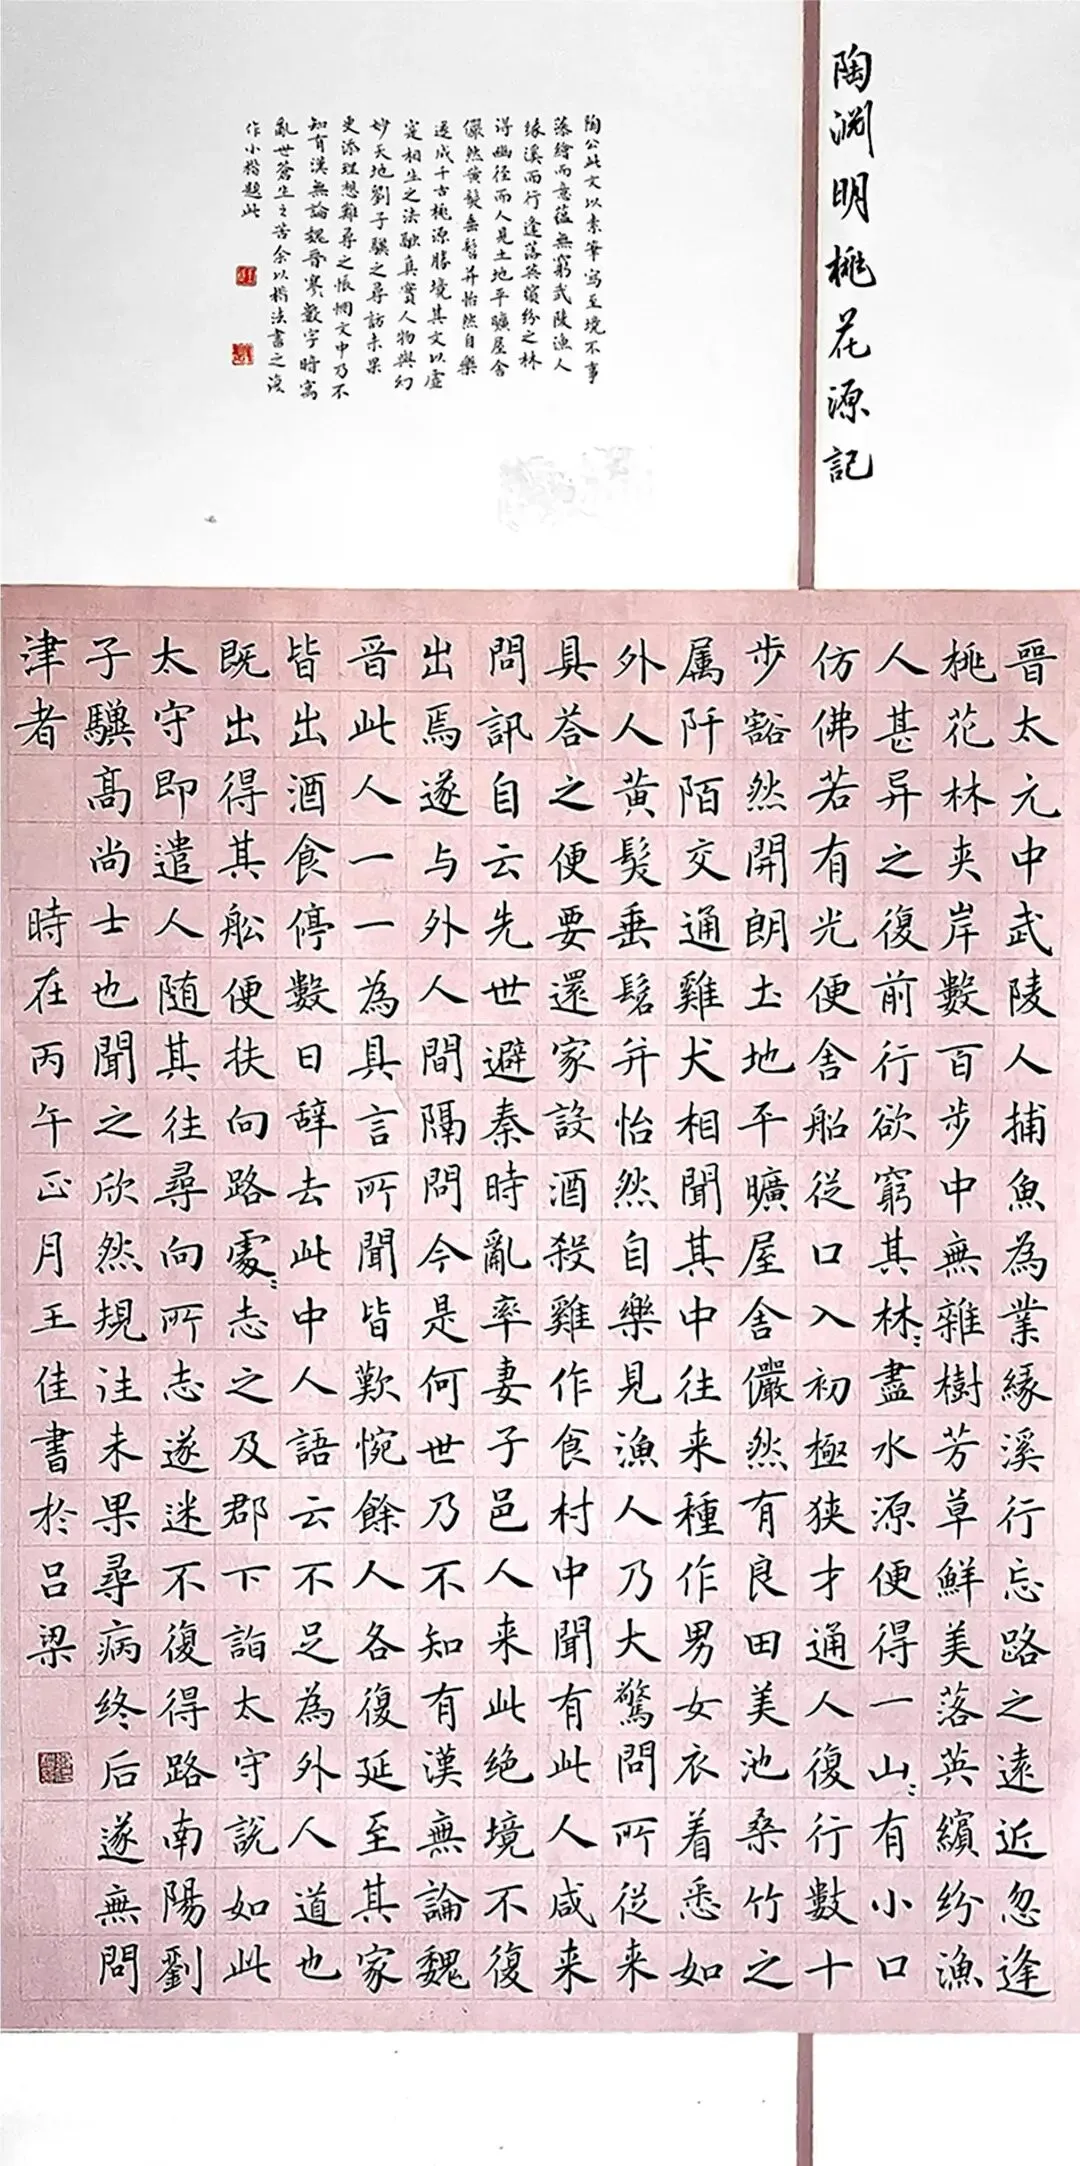 陶淵明桃花源記
陶公此文以素筆寫至境不事
藻繪而意蘊無窮武陵漁人
緣溪而行逢落英繽紛之林
得幽徑而人見土地平曠屋舍
儼然黃髮垂髫并怡然自樂
遂成千古桃源勝境其文以虛
寔相生之法融真實人物與幻
妙天地劉子驥之尋訪未果
更添理想難尋之悵惘文中乃不
知有漢無論魏晉寥數字時寓
亂世蒼生之苦余以楷法書之後
作小楷題此
晉太元中武陵人捕魚為業緣溪行忘路之遠近忽逢
桃花林夾岸數百步中無雜樹芳草鮮美落英繽紛漁
人甚异之復前行欲窮其林〻盡水源便得一山〻有小口
仿佛若有光便舍船從口入初極狹才通人復行數十
步豁然開朗土地平曠屋舍儼然有良田美池桑竹之
属阡陌交通雞犬相聞其中往来種作男女衣着悉如
外人黃髮垂髫并怡然自樂見漁人乃大驚問所從来
具荅之便要還家設酒殺雞作食村中聞有此人咸来
問訊自云先世避秦時亂率妻子邑人来此绝境不復
出焉遂与外人間隔問今是何世乃不知有漢無論魏
晉此人一一為具言所聞皆歎惋餘人各復延至其家
皆出酒食停數日辞去此中人語云不足為外人道也
既出得其舩便扶向路處〻志之及郡下詣太守說如此
太守即遣人随其往尋向所志遂迷不復得路南陽劉
子驥高尚士也聞之欣然規往未果尋病终后遂無問
津者 時在丙午正月王佳書於吕梁